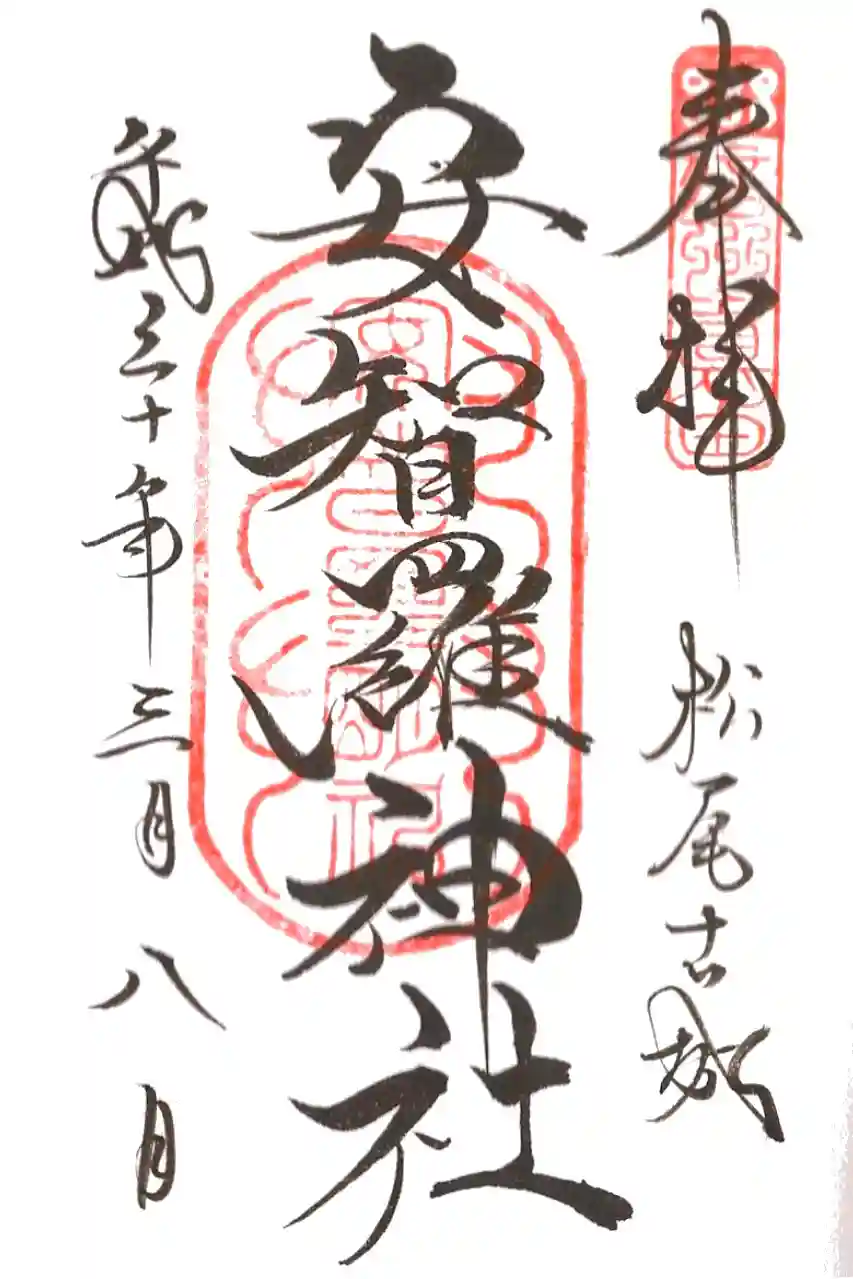 奉拝 松尾古城
安智羅神社
平成三十年三月八日
信州真田